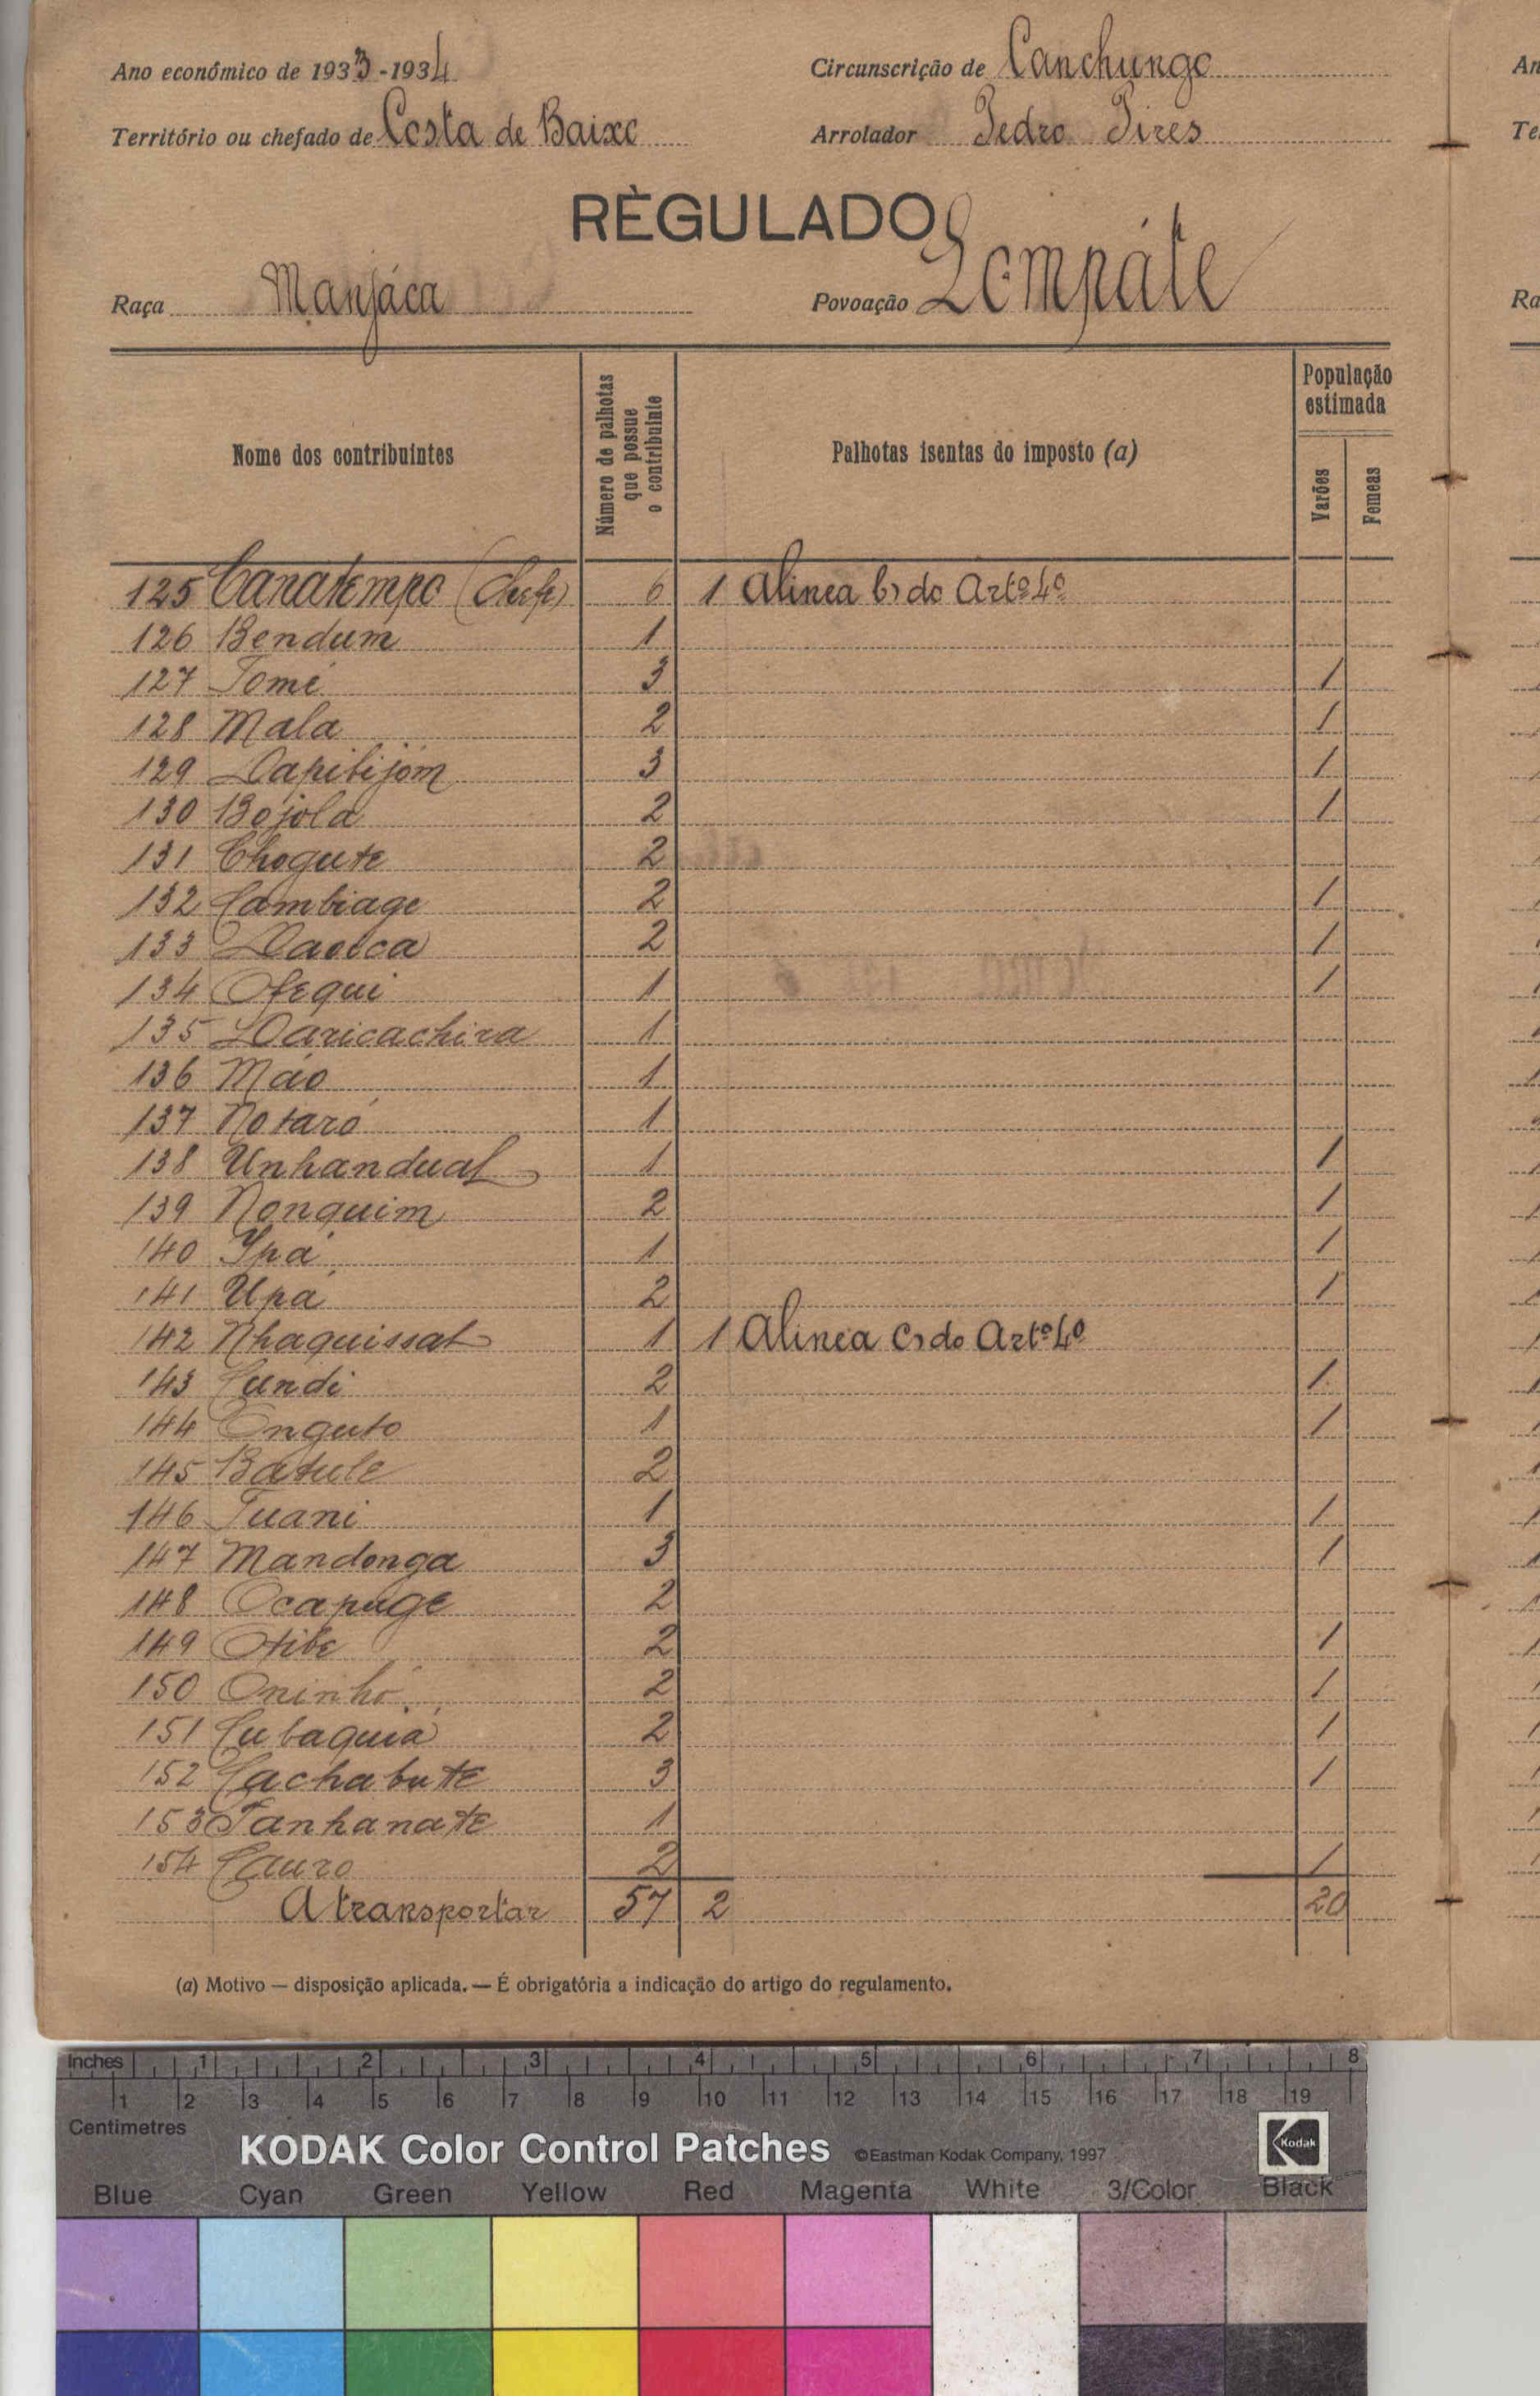 Ano económico de 1933-1934 Circunscrição de Canchungo
Território ou chefado de Costa de Baixo Arrolador Pedro Pires
RÈGULADO
Raça Manjáca Povoação Lompáte
Nome dos contribuintes Número de palhotas que possue o contribuinte Palhotas isentas do imposto (a) População estimada
Varões Femeas
125 Canatempo (Chefe) 6 1 Alinea b) do Artº 4º
126 Bendum 1
127 Tomé 3 1
128 Mala 2 1
129 Dapibijóm 3 1
130 Bojola 2 1
131 Chogute 2
132 Cambiage 2 1
133 2 1
134 Ofequi 1 1
135 Daricachira 1
136 Máo 1
137 Notaró 1
138 Unhandual 1 1
139 Nonquim 2 1
140 Ypá 1 1
141 Upá 2 1
142 Nhaquissat 1 1 Alinea c) do Artº 4º
143 Cundi 2 1
144 Onguto 1 1
145 Batule 2
146 Tuani 1 1
147 Mandonga 3 1
148 Ocapuge 2
149 Otibe 2 1
150 Oninhó 2 1
151 Cubaquiá 2 1
152 Cachabute 3 1
153 Fanhanate 1
154 Cauro 2 1
A transportar 57 2 20
(a) Motivo — disposição aplicada. — É obrigatória a indicação do artigo do regulamento.
Inches 1 2 3 4 5 6 7 8
1 2 3 4 5 6 7 8 9 10 11 12 13 14 15 16 17 18 19
Centimetres
KODAK Color Control Patches ©Eastman Kodak Company, 1997 Kodak
Blue Cyan Green Yellow Red Magenta White 3/Color Black